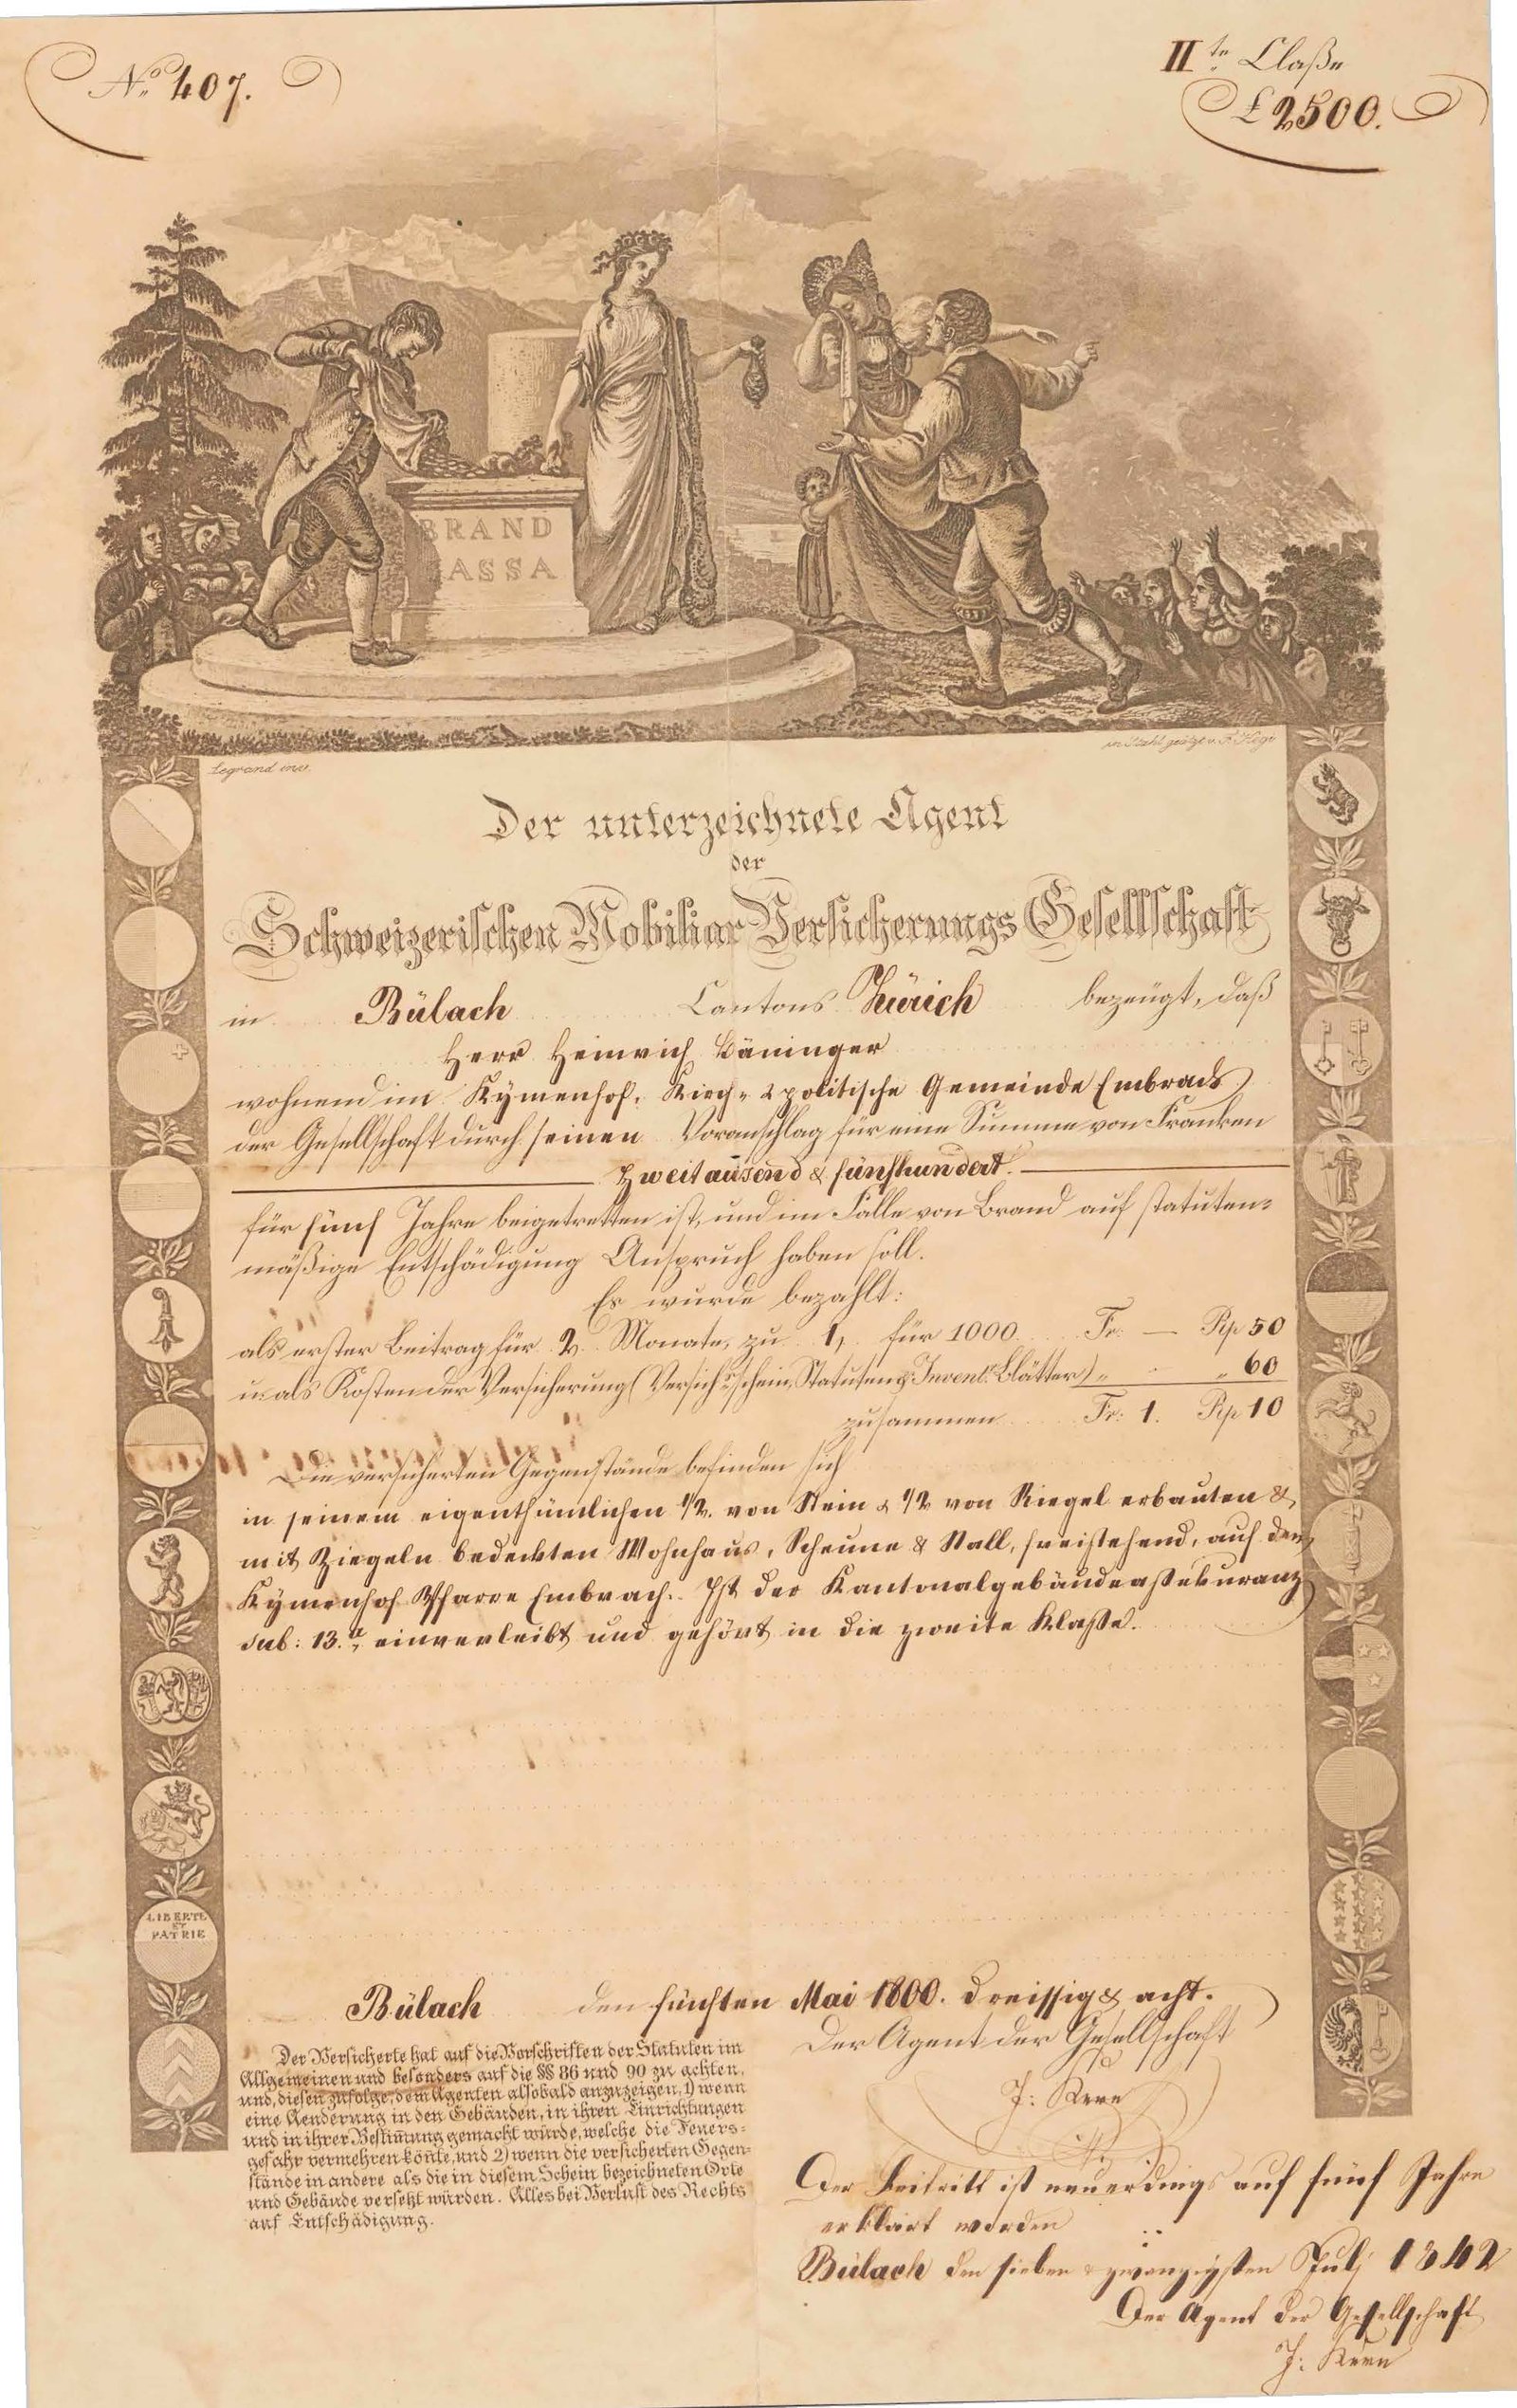 No. 407.
IIte. Claße
£ 2500.
BRAND
ASSA
Legrand inv.
in Stahl geätzt v. F. Hegi
Der unterzeichnete Agent
der
Schweizerischen Mobiliar Versicherungs Gesellschaft
in Bülach Cantons Zürich bezeugt, daß
Herr Heinrich Bäninger
wohnend im Kymenhof, Kirch- & politische Gemeinde Embrach
der Gesellschaft durch seinen Voranschlag für eine Summe von Franken
Zweitausend & fünfhundert.
für fünf Jahre beigetretten ist, und im Falle von Brand auf statuten-
mäßige Entschädigung Anspruch haben soll.
Es wurde bezahlt:
als erster Beitrag für 2. Monate, zu 1, für 1000 Fr: — Rp 50
u: als Kosten der Versicherung (Versichgsschein, Statuten & Invent. Blätter) „ „ 60
zusammen Fr: 1. Rp 10
Die versicherten Gegenstände befinden sich
in seinem eigenthümlichen 1/2. von Stein & 1/2 von Riegel erbauten &
mit Ziegeln bedeckten Wohnhaus, Scheune & Stall, freistehend, auf dem
Kymenhof Pfarre Embrach. Ist der Kantonalgebäudeaßekuranz
sub: 13.a, einverleibt und gehört in die zweite Klaße.
LIBERTÉ
ET
PATRIE
Bülach den fünften Mai 1800. dreissig & acht.
Der Agent der Gesellschaft
J: Kern
Der Versicherte hat auf die Vorschriften der Statuten im
Allgemeinen und besonders auf die §§ 86 und 90 zu achten,
und, diesen zufolge, dem Agenten alsobald anzuzeigen, 1) wenn
eine Aenderung in den Gebäuden, in ihren Einrichtungen
und in ihrer Bestim̄ung gemacht würde, welche die Feuers-
gefahr vermehren kön̄te, und 2) wenn die versicherten Gegen-
stände in andere als die in diesem Schein bezeichneten Orte
und Gebäude versetzt würden. Alles bei Verlust des Rechts
auf Entschädigung.
Der Beitritt ist neuerdings auf fünf Jahre
erklärt worden
Bülach den sieben & zwanzigsten Julj 1842
Der Agent der Gesellschaft
J: Kern